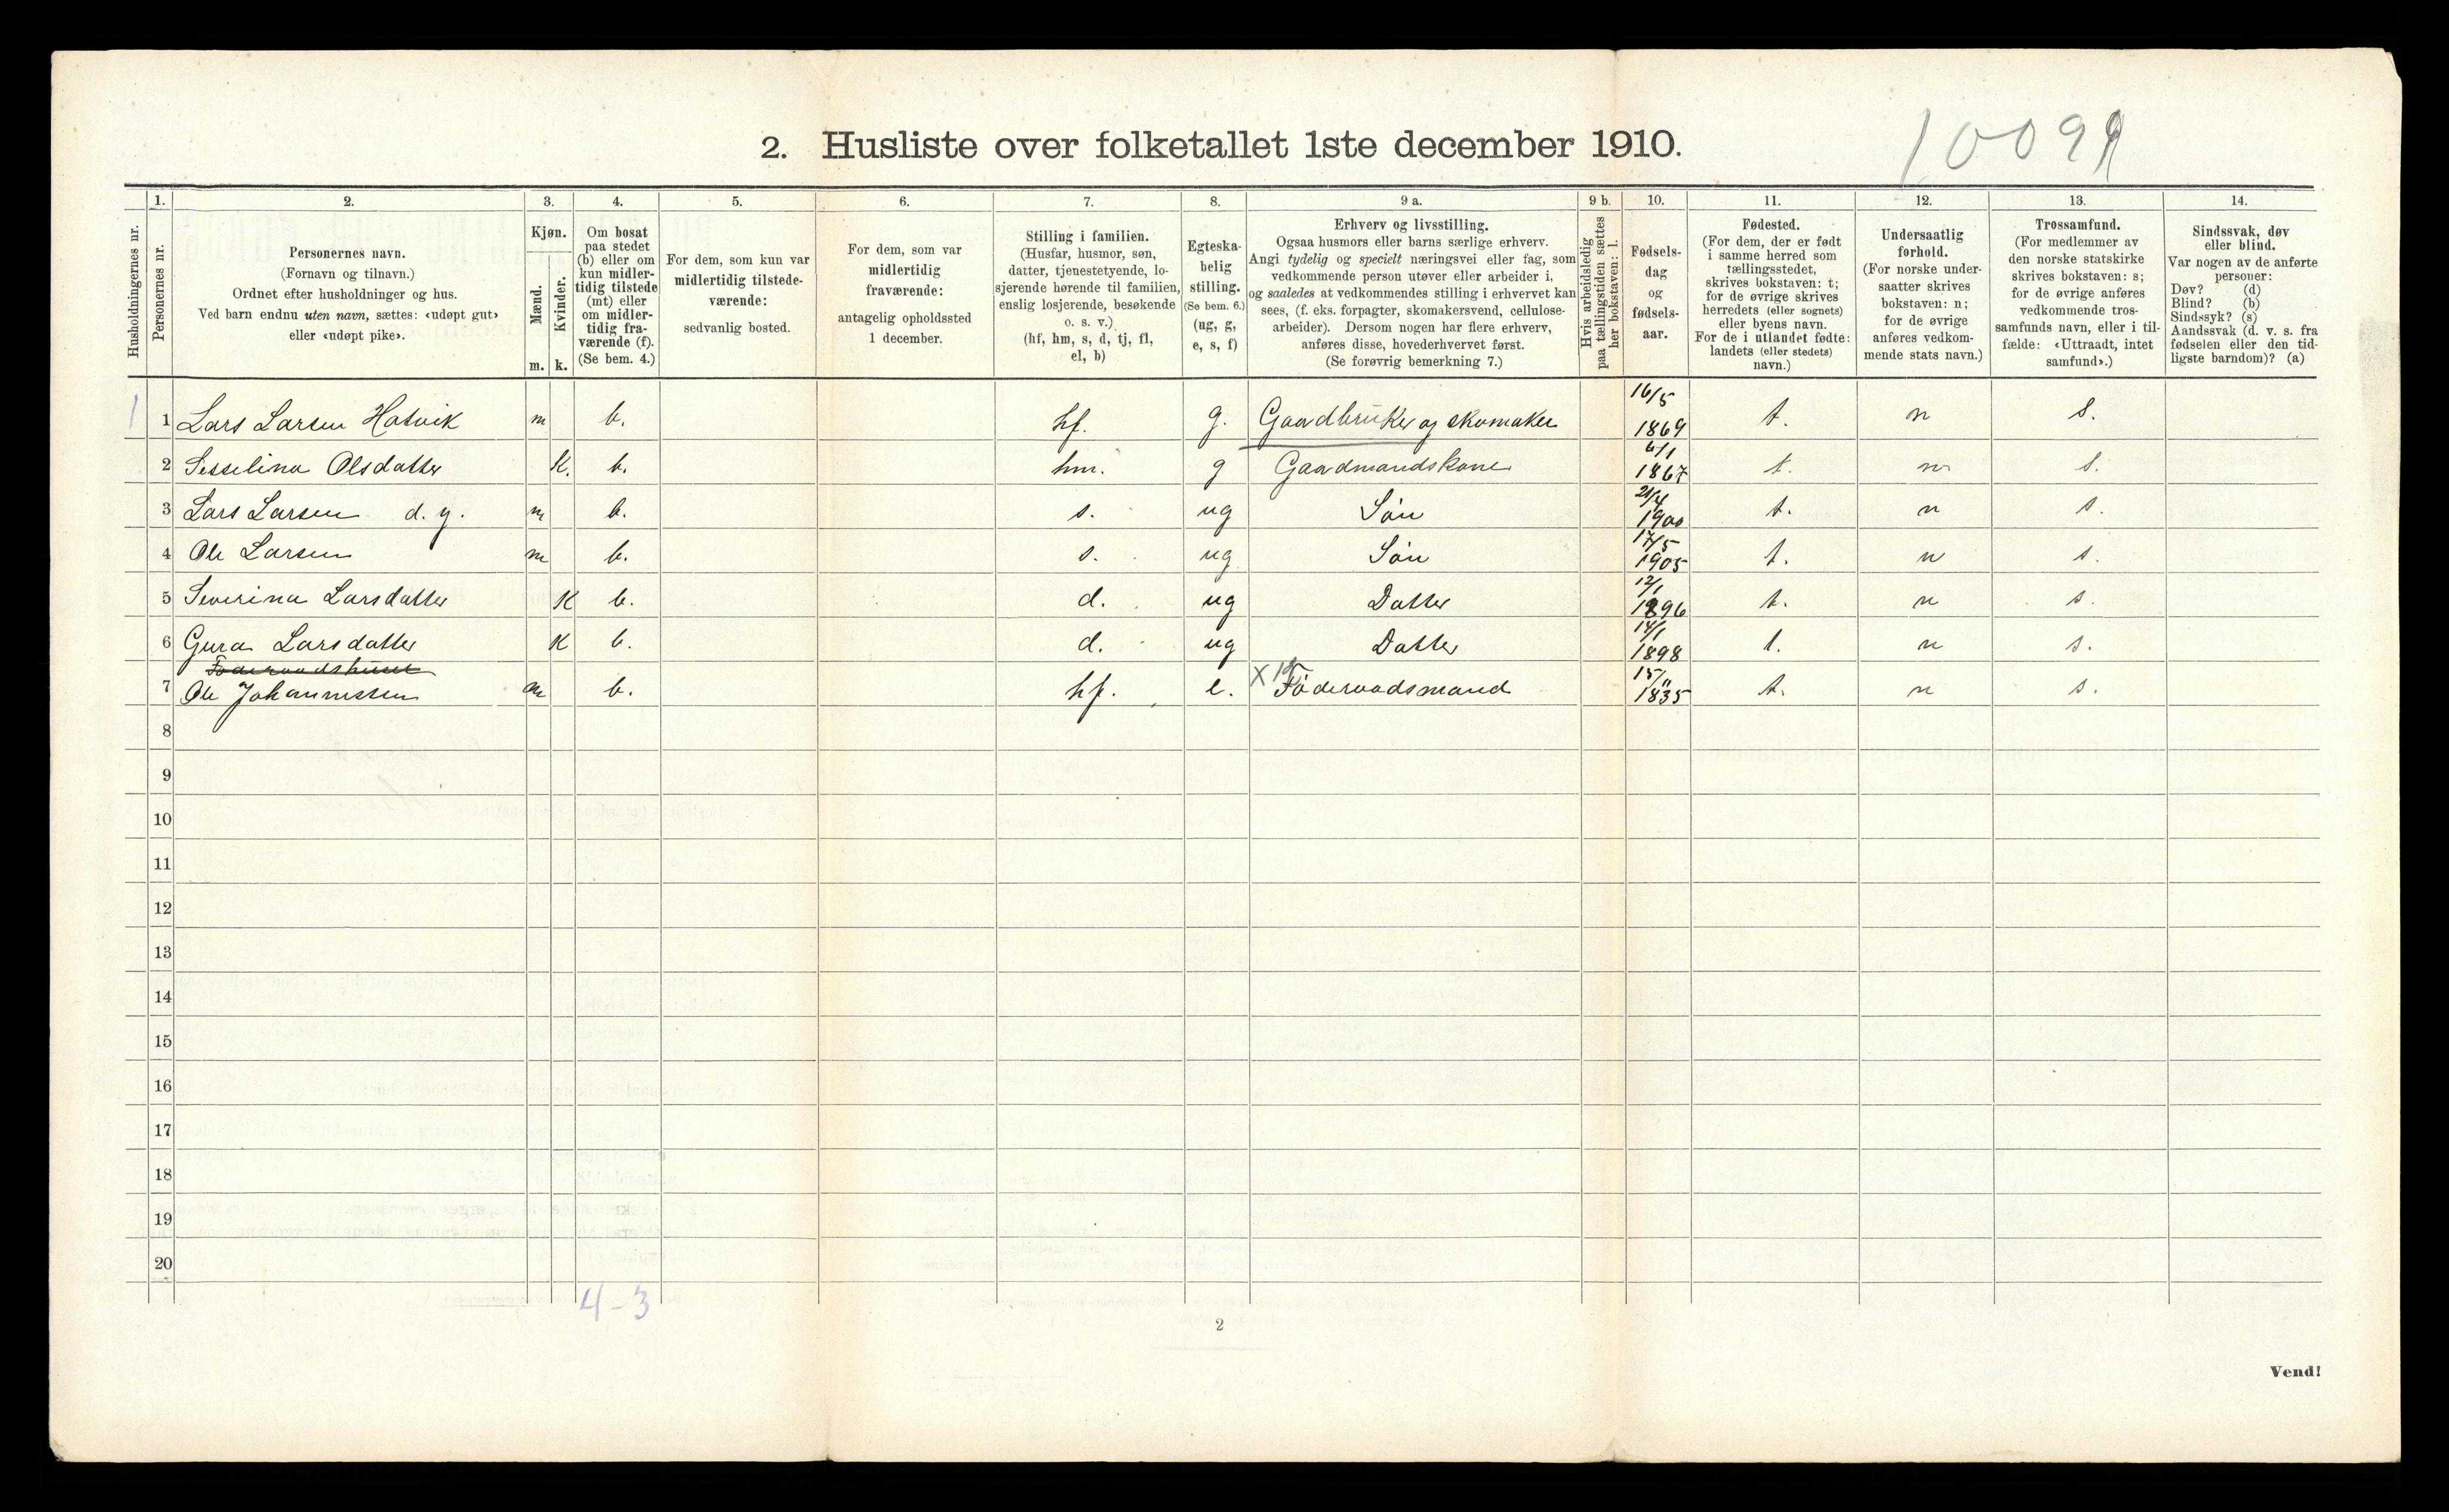 10099
2. Husliste over folketallet 1ste december 1910.
1. 2. 3. 4. 5. 6. 7. 8. 9 a. 9 b. 10. 11. 12. 13. 14.
Husholdningernes nr.
Personernes nr.
Personernes navn.
(Fornavn og tilnavn.)
Ordnet efter husholdninger og hus.
Ved barn endnu uten navn, sættes: «udøpt gut»
eller «udøpt pike».
Kjøn.
Mænd.
Kvinder.
m. k.
Om bosat
paa stedet
(b) eller om
kun midler-
tidig tilstede
(mt) eller
om midler-
tidig fra-
værende (f).
(Se bem. 4.)
For dem, som kun var
midlertidig tilstede-
værende:
sedvanlig bosted.
For dem, som var
midlertidig
fraværende:
antagelig opholdssted
1 december.
Stilling i familien.
(Husfar, husmor, søn,
datter, tjenestetyende, lo-
sjerende hørende til familien,
enslig losjerende, besøkende
o. s. v.)
(hf, hm, s, d, tj, fl,
el, b)
Egteska-
belig
stilling.
(Se bem. 6.)
(ug, g,
e, s, f)
Erhverv og livsstilling.
Ogsaa husmors eller barns særlige erhverv.
Angi tydelig og specielt næringsvei eller fag, som
vedkommende person utøver eller arbeider i,
og saaledes at vedkommendes stilling i erhvervet kan
sees, (f. eks. forpagter, skomakersvend, cellulose-
arbeider). Dersom nogen har flere erhverv,
anføres disse, hovederhvervet først.
(Se forøvrig bemerkning 7.)
Hvis arbeidsledig
paa tællingstiden sættes
her bokstaven: l.
Fødsels-
dag
og
fødsels-
aar.
Fødested.
(For dem, der er født
i samme herred som
tællingsstedet,
skrives bokstaven: t;
for de øvrige skrives
herredets (eller sognets)
eller byens navn.
For de i utlandet fødte:
landets (eller stedets)
navn.)
Undersaatlig
forhold.
(For norske under-
saatter skrives
bokstaven: n;
for de øvrige
anføres vedkom-
mende stats navn.)
Trossamfund.
(For medlemmer av
den norske statskirke
skrives bokstaven: s;
for de øvrige anføres
vedkommende tros-
samfunds navn, eller i til-
fælde: «Uttraadt, intet
samfund».)
Sindssvak, døv
eller blind.
Var nogen av de anførte
personer:
Døv? (d)
Blind? (b)
Sindssyk? (s)
Aandssvak (d. v. s. fra
fødselen eller den tid-
ligste barndom)? (a)
1 1 Lars Larsen Hatvik m b. hf. g. Gaardbruker og skomaker 16/5 1869 t. n s.
2 Sesselina Olsdatter K. b. hm. g Gaardmandskone 6/1 1867 t. n s.
3 Lars Larsen d. y. m b. s. ug Søn 21/4 1900 t. n s.
4 Ole Larsen m b. s. ug Søn 17/5 1905 t. n s.
5 Severina Larsdatter K b. d. ug Datter 12/1 1896 t. n s.
6 Gura Larsdatter K b. d. ug Datter 14/1 1898 t. n s.
Føderaadshuset
7 Ole Johannessen m b. hf. e. Føderaadsmand 15/11 1835 t. n s.
8
9
10
11
12
13
14
15
16
17
18
19
20
4-3
2
Vend!